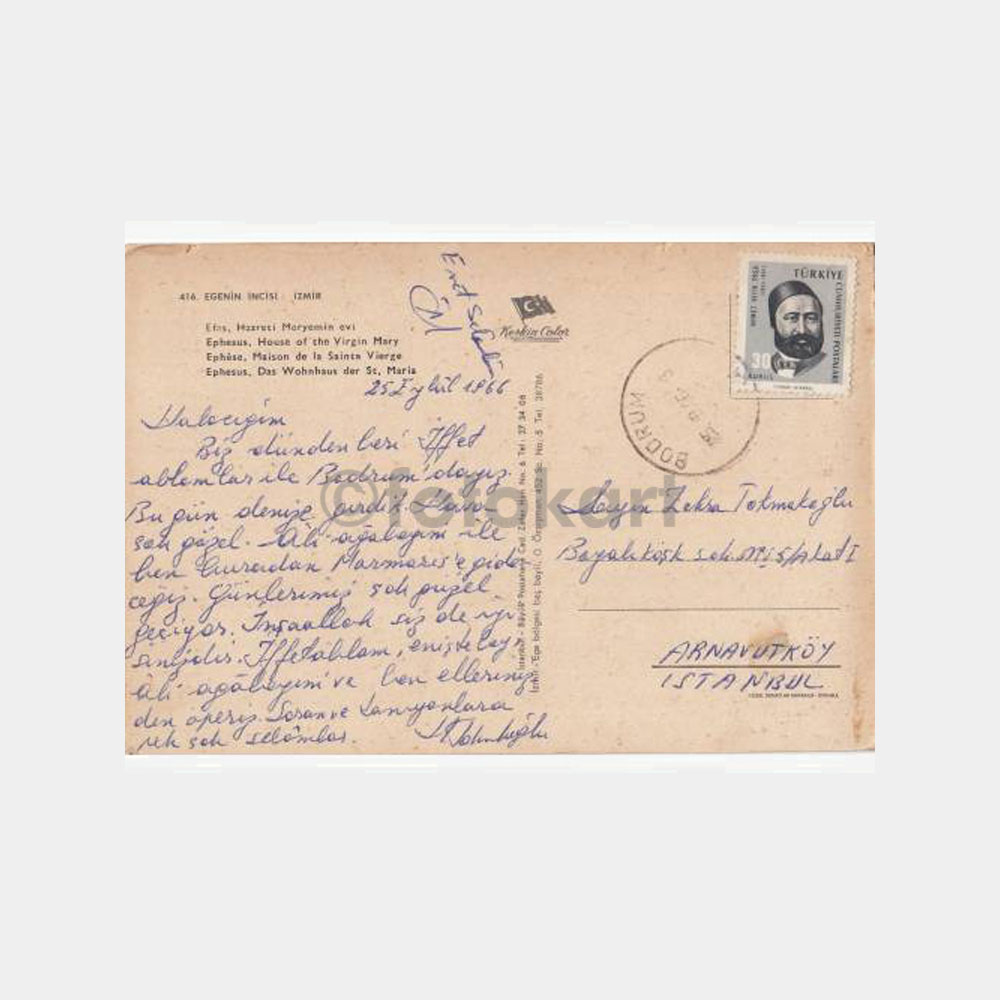 416. EGENİN İNCİSİ : İZMİR
Efes, Hazreti Meryemin evi
Ephesus, House of the Virgin Mary
Ephèse, Maison de la Sainte Vierge
Ephesus, Das Wohnhaus der St, Maria
25 Eylül 1966
Halacığım
Biz dünden beri İffet
ablamlar ile Bodrum'dayız.
Bu gün denize girdik. Hava
çok güzel. Ali ağabeyim ile
ben buradan Marmaris'e gide
ceğiz. Günlerimiz çok güzel
geçiyor. İnşaallah siz de iyi
sinizdir. İffet ablam, enişte bey
Ali ağabeyim ve ben elleriniz
den öperiz. Soran ve tanıyanlara
pek çok selâmlar.
Keskin Color
İstanbul - Büyük Postahane Cad. Zafer Han No. 6 Tel : 27 34 08
İzmir - Ege bölgesi baş bayii. O. Özgüven 452 Sc. No: 5 Tel. 38786
TÜRKİYE
CUMHURİYETİ POSTALARI
30
KURUŞ
BODRUM
©fotokart
Sayın Zehra Tokmakoğlu
Bayaltıköşk sok. No 5/A kat I
ARNAVUTKÖY
İSTANBUL